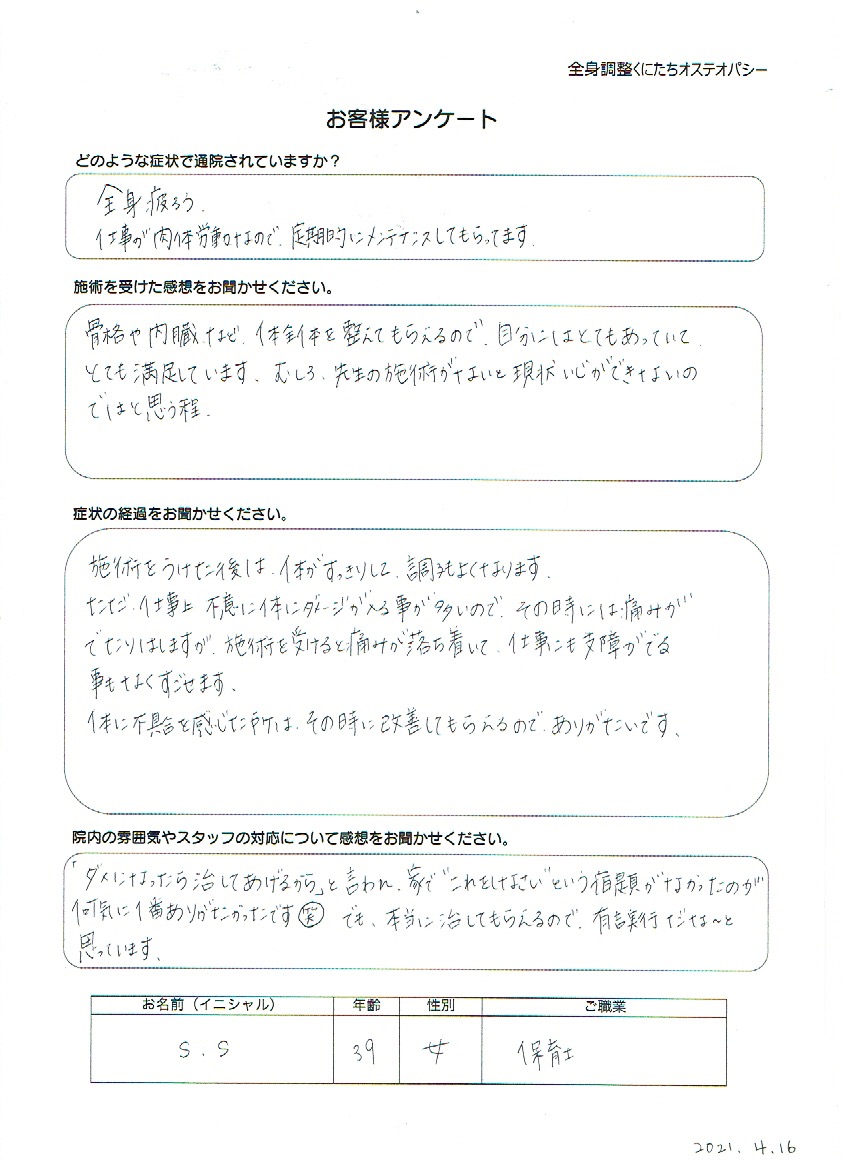 全身調整くにたちオステオパシー
お客様アンケート
どのような症状で通院されていますか？
全身疲ろう.
仕事が肉体労動なので、定期的にメンテナンスしてもらってます.
施術を受けた感想をお聞かせください。
骨格や内臓など、体全体を整えてもらえるので、自分にはとてもあっていて、
とても満足しています、むしろ、先生の施術がないと現状いじができないの
ではと思う程.
症状の経過をお聞かせください。
施術をうけた後は、体がすっきりして、調子もよくなります.
ただ、仕事上 不意に体にダメージが入る事が多いので、その時には痛みが
でたりはしますが、施術を受けると痛みが落ち着いて、仕事にも支障がでる
事もなくすごせます、
体に不具合を感じた所は、その時に改善してもらえるので、ありがたいです、
院内の雰囲気やスタッフの対応について感想をお聞かせください。
「ダメになったら治してあげるから」と言われ、家で"これをしなさい"という宿題がなかったのが
何気に1番ありがたかったです㊗笑 でも、本当に治してもらえるので、有言実行だな〜と
思っています、
お名前（イニシャル） 年齢 性別 ご職業
S.S 39 女 保育士
2021. 4.16